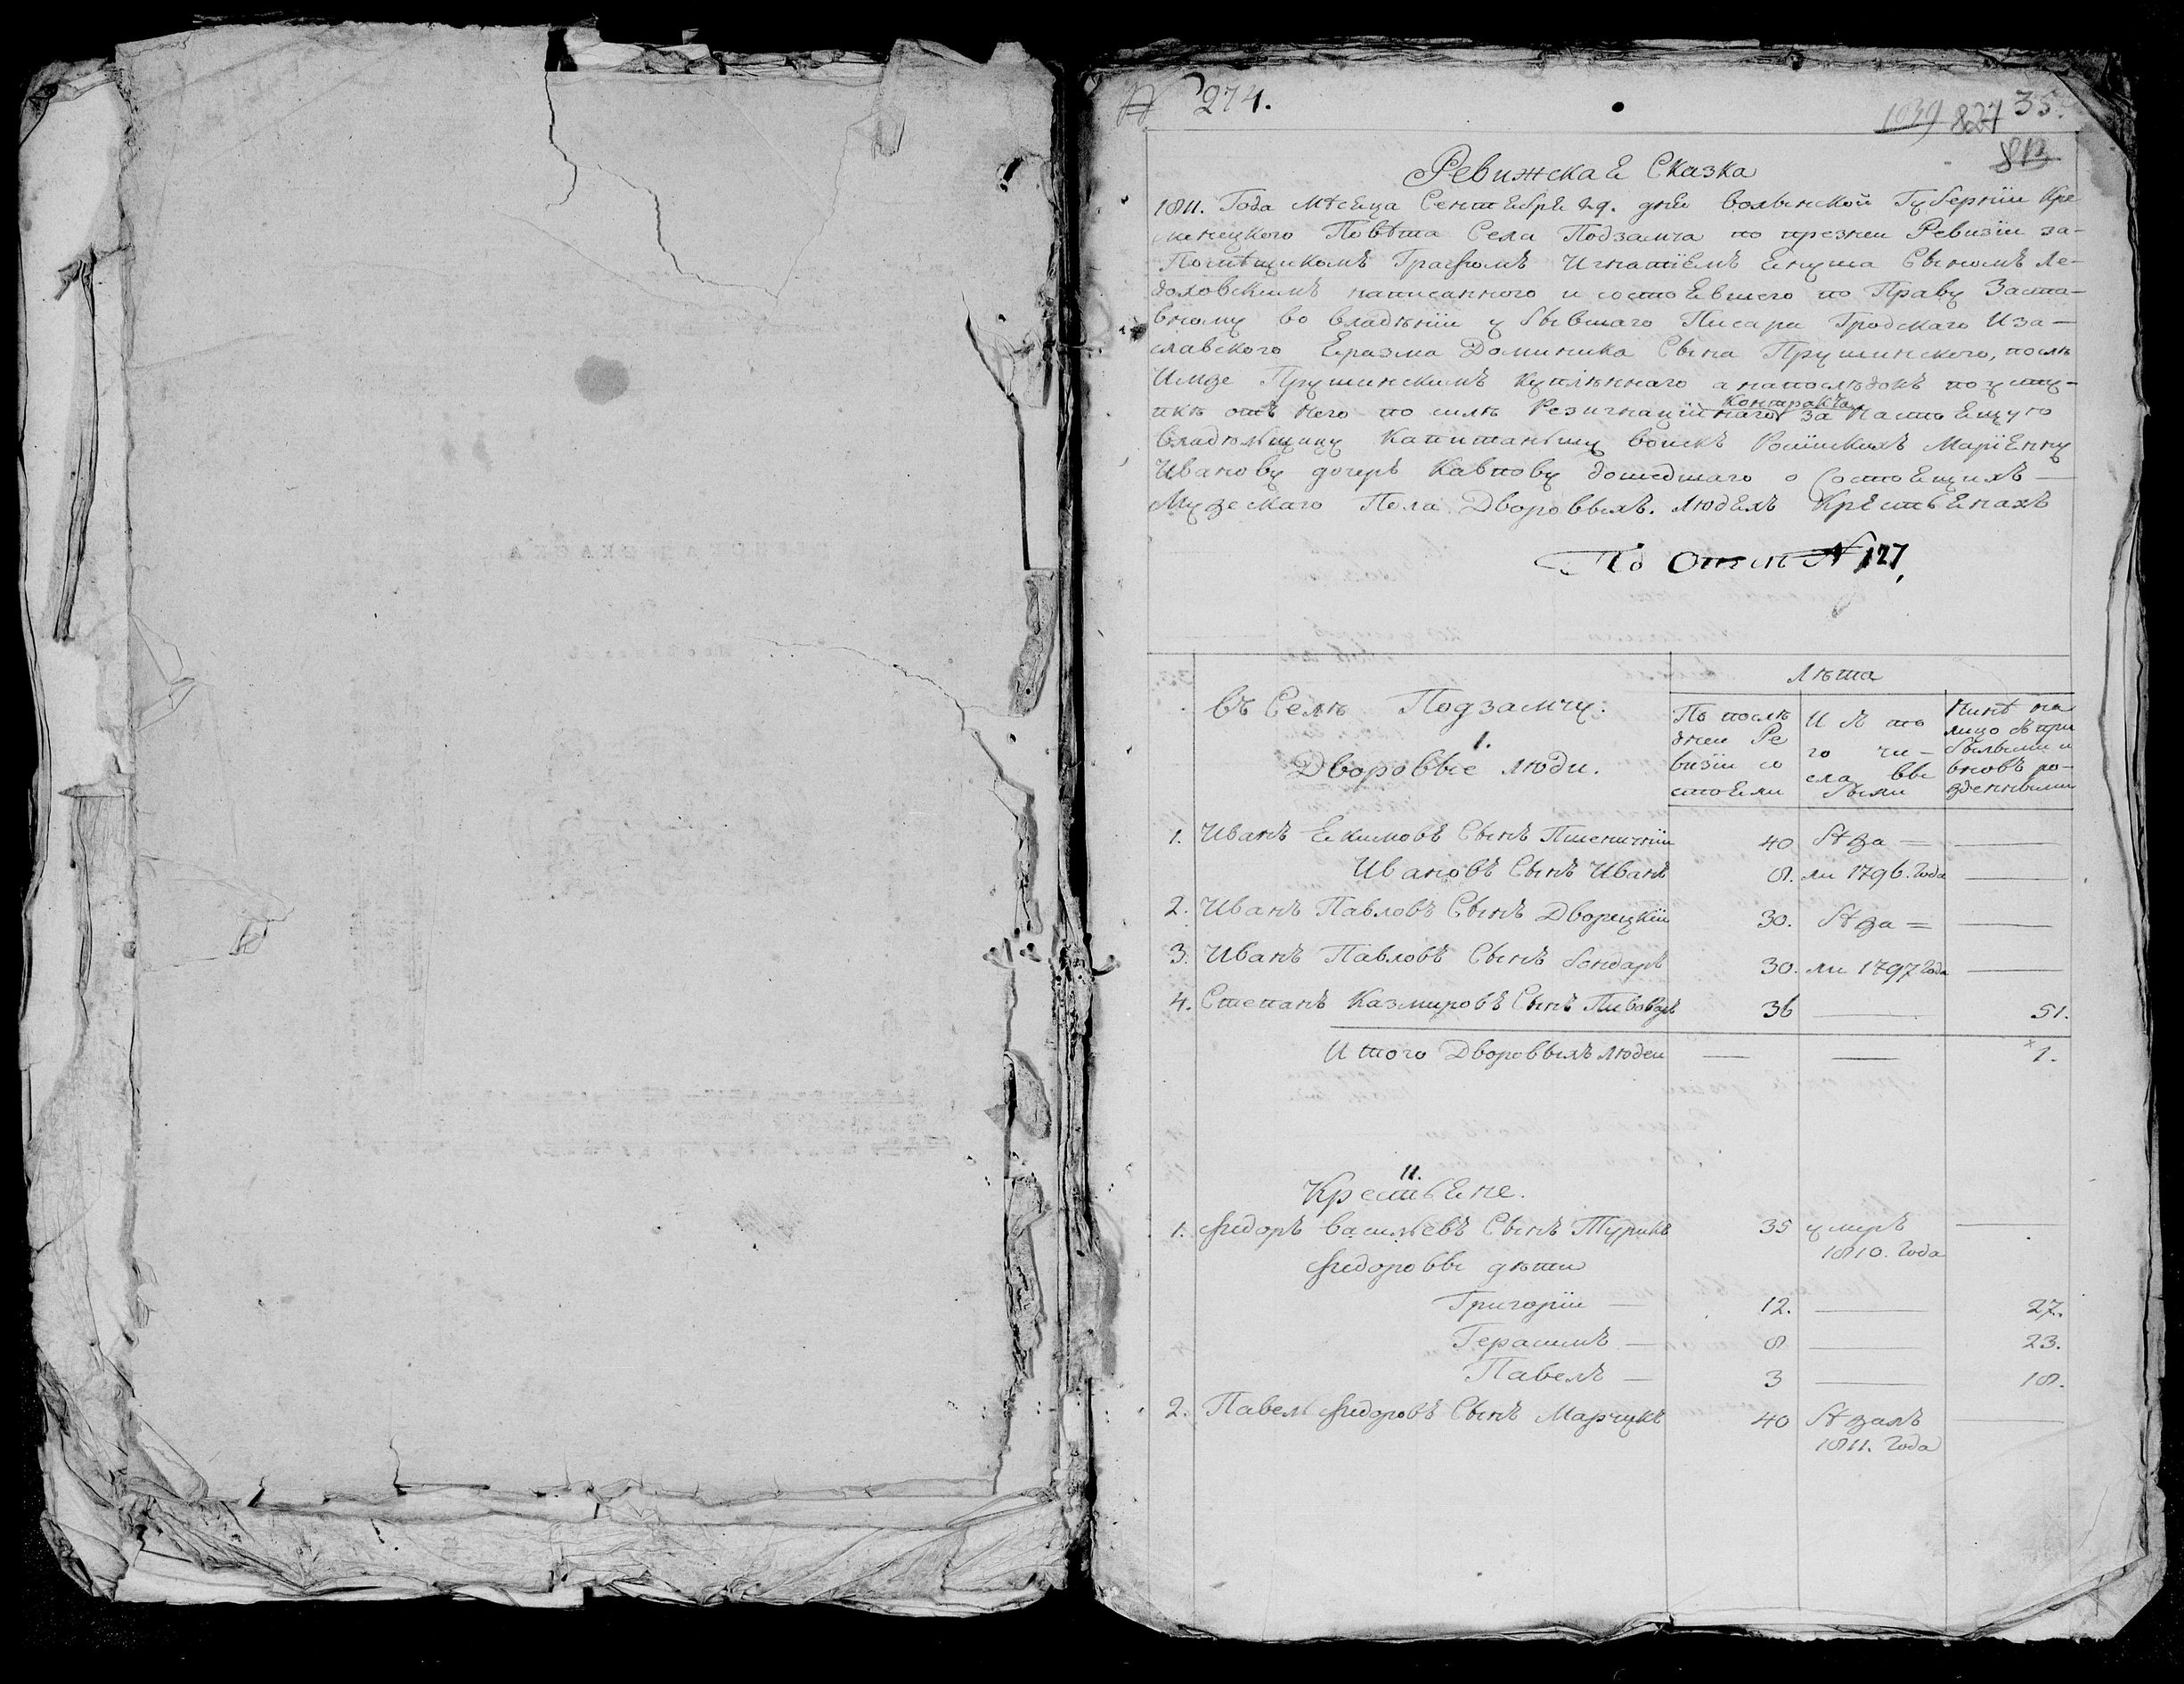 № 274.
1039 827 35.
813
Ревижская Сказка
1811. Года Мѣсяца Сентября 29. дня волынской Губернїи Кре
менецкого Повѣта Села Подзамча по прежнеи Ревизїи за-
Помѣщикомъ Графомъ Игнатїемъ Януша Сыномъ Ле-
доховскимъ написанного и состоявшего по Праву Заста-
вному во владѣнїи у бывшаго Писаря Гродскаго Иза-
славского Еразма Доминика Сына Прушинского, послѣ
Имже Прушинскимъ купленнаго а напослѣдокъ по усту-
Контракта
пкѣ отъ него по силѣ Резигнацїйнаго за настоящую
владѣльщицу Капитаншу воискъ Россїискихъ Марїянну
Иванову дочерь дошедшаго о Состоящихъ
Мужескаго Пола Дворовыхъ людяхъ Крестьянахъ
По Опис № 127
Въ Селѣ Подзамчу.
1.
Дворовые люди.
Лѣта
По послѣ
днеи Ре
визїи со
стояли
Изъ то
го чи-
сла вы
были
Нинѣ на
лицо съ при
былыми и
вновь ро-
жденными
1. Иванъ Екимовъ Сынъ Пшеничнїи 40 бѣжа =
Ивановъ Сынъ Иванъ 8. ли 1796. Года
2. Иванъ Павловъ Сынъ Дворецкїи 30. бѣжа =
3. Иванъ Павловъ Сынъ бондарь 30. ли 1797 Года
4. Степанъ Казмировъ Сынъ Пивоваръ 36 — 51.
Итого Дворовыхъ людеи — — 1.
11.
Крестьяне.
1. Федоръ Васильевъ Сынъ Турикъ 35 умеръ —
1810. Года
Федоровы дѣти
Григорїи — 12. — 27.
Герасимъ — 8 — 23.
Павелъ — 3 — 18.
2. Павелъ Федоровъ Сынъ Марчукъ 40 бѣжалъ —
1811. Года